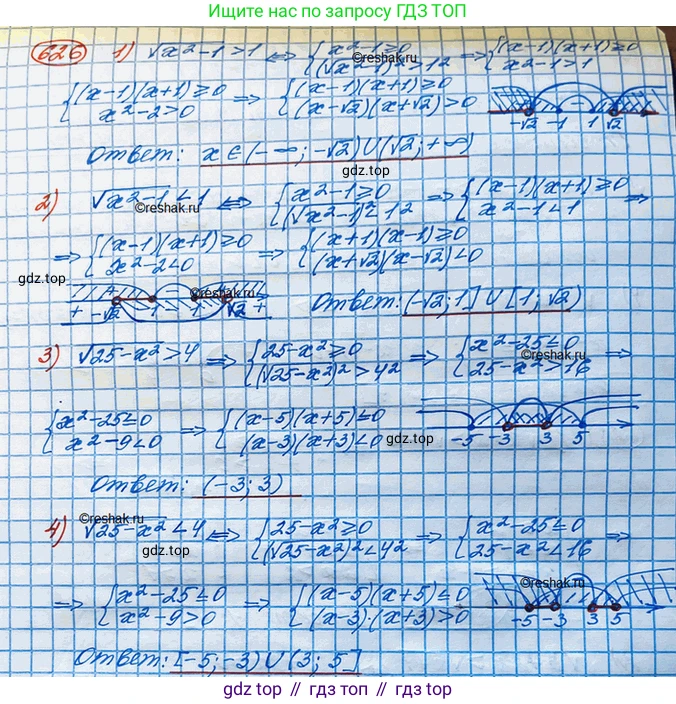 Ищите нас по запросу ГДЗ ТОП
626 1) √x²-1 > 1 ⟺ {x²-1≥0 {(√x²-1)² > 1² ⇒ {(x-1)(x+1)≥0 {x²-1>1
©reshak.ru
{(x-1)(x+1)≥0 {x²-2>0 ⇒ {(x-1)(x+1)≥0 {(x-√2)(x+√2)>0
-√2 -1 1 √2
Ответ: x∈(-∞; -√2)U(√2; +∞)
gdz.top
2) √x²-1 < 1 ⟺ {x²-1≥0 {(√x²-1)² < 1² ⇒ {(x-1)(x+1)≥0 {x²-1<1 ⇒
©reshak.ru
⇒ {(x-1)(x+1)≥0 {x²-2<0 ⇒ {(x+1)(x-1)≥0 {(x+√2)(x-√2)<0
gdz.top
©reshak.ru
+ -√2 -1 - 1 √2 +
Ответ: (-√2; 1] U [1; √2)
3) √25-x² > 4 ⇒ {25-x²≥0 {(√25-x²)² > 4² ⇒ {x²-25≤0 {25-x²>16 ⇒
©reshak.ru
{x²-25≤0 {x²-9<0 ⇒ {(x-5)(x+5)≤0 {(x-3)(x+3)<0
gdz.top
-5 -3 3 5
Ответ: (-3; 3)
4) √25-x² < 4 ⟺ {25-x²≥0 {(√25-x²)² < 4² ⇒ {x²-25≤0 {25-x²<16 ⇒
©reshak.ru
gdz.top
⇒ {x²-25≤0 {x²-9>0 ⇒ {(x-5)(x+5)≤0 {(x-3)·(x+3)>0
©reshak.ru
-5 -3 3 5
Ответ: [-5; -3) U (3; 5]
gdz.top // гдз.топ // гдз.top